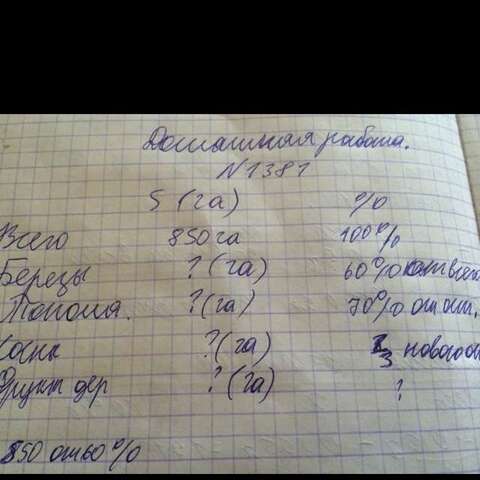 Домашняя работа.
N1381
S (га) %
Всего 850 га 100%
Березы ? (га) 60% от всего
Тополя. ?(га) 70% от ост.
Сосны ?(га) нового
Фрукт дер ? (га) ?
850 от 60%